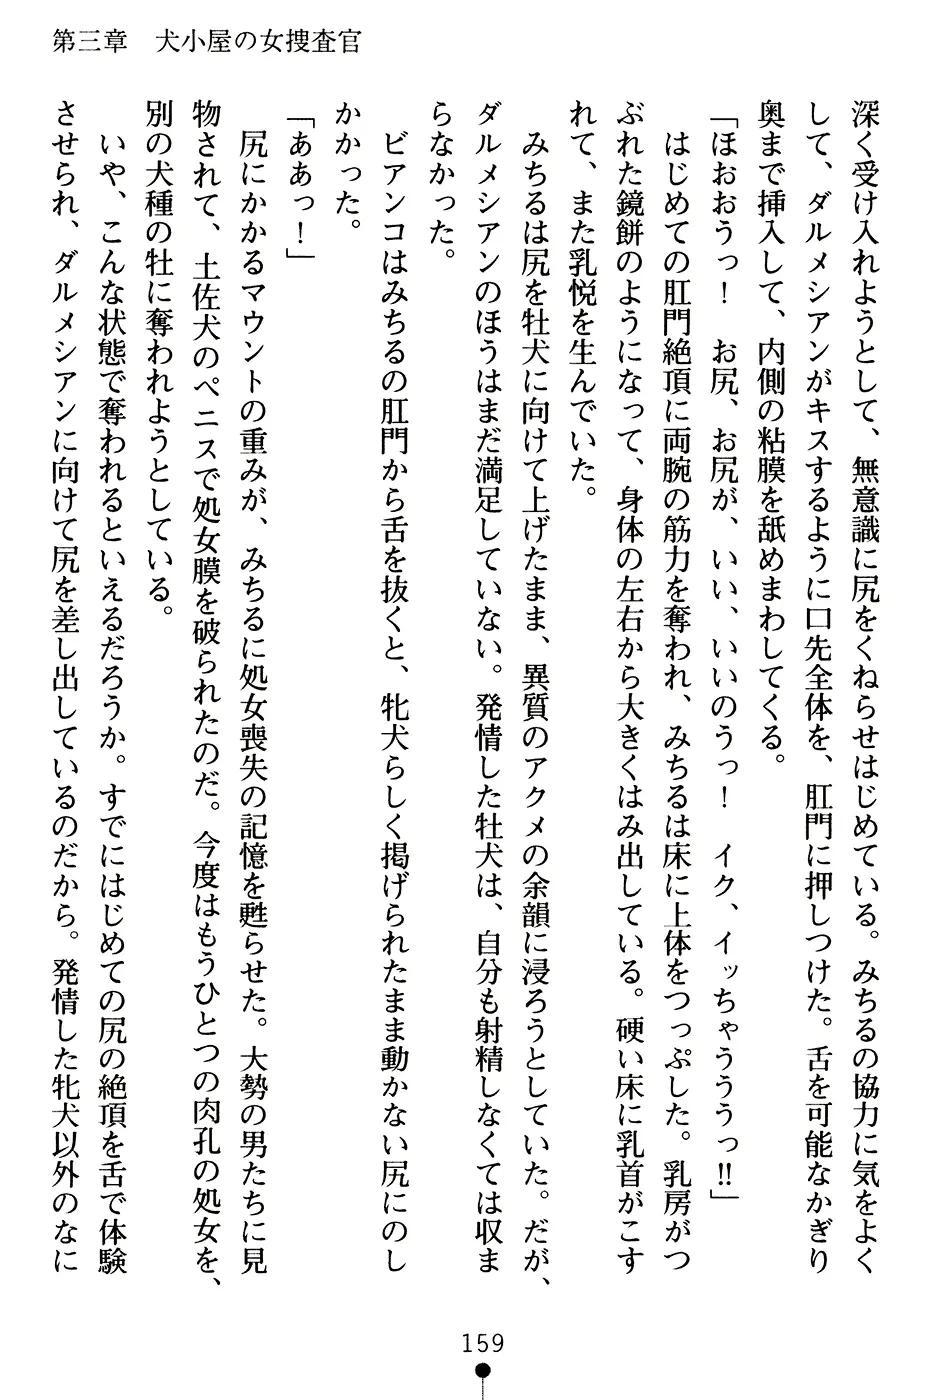 第三章　犬小屋の女捜査官
深く受け入れようとして、無意識に尻をくねらせはじめている。みちるの協力に気をよく
して、ダルメシアンがキスするように口先全体を、肛門に押しつけた。舌を可能なかぎり
奥まで挿入して、内側の粘膜を舐めまわしてくる。
「ほおおうっ！　お尻、お尻が、いい、いいのうっ！　イク、イッちゃうううっ‼」
はじめての肛門絶頂に両腕の筋力を奪われ、みちるは床に上体をつっぷした。乳房がつ
ぶれた鏡餅のようになって、身体の左右から大きくはみ出している。硬い床に乳首がこす
れて、また乳悦を生んでいた。
みちるは尻を牡犬に向けて上げたまま、異質のアクメの余韻に浸ろうとしていた。だが、
ダルメシアンのほうはまだ満足していない。発情した牡犬は、自分も射精しなくては収ま
らなかった。
ビアンコはみちるの肛門から舌を抜くと、牝犬らしく掲げられたまま動かない尻にのし
かかった。
「ああっ！」
尻にかかるマウントの重みが、みちるに処女喪失の記憶を甦らせた。大勢の男たちに見
物されて、土佐犬のペニスで処女膜を破られたのだ。今度はもうひとつの肉孔の処女を、
別の犬種の牡に奪われようとしている。
いや、こんな状態で奪われるといえるだろうか。すでにはじめての尻の絶頂を舌で体験
させられ、ダルメシアンに向けて尻を差し出しているのだから。発情した牝犬以外のなに
159